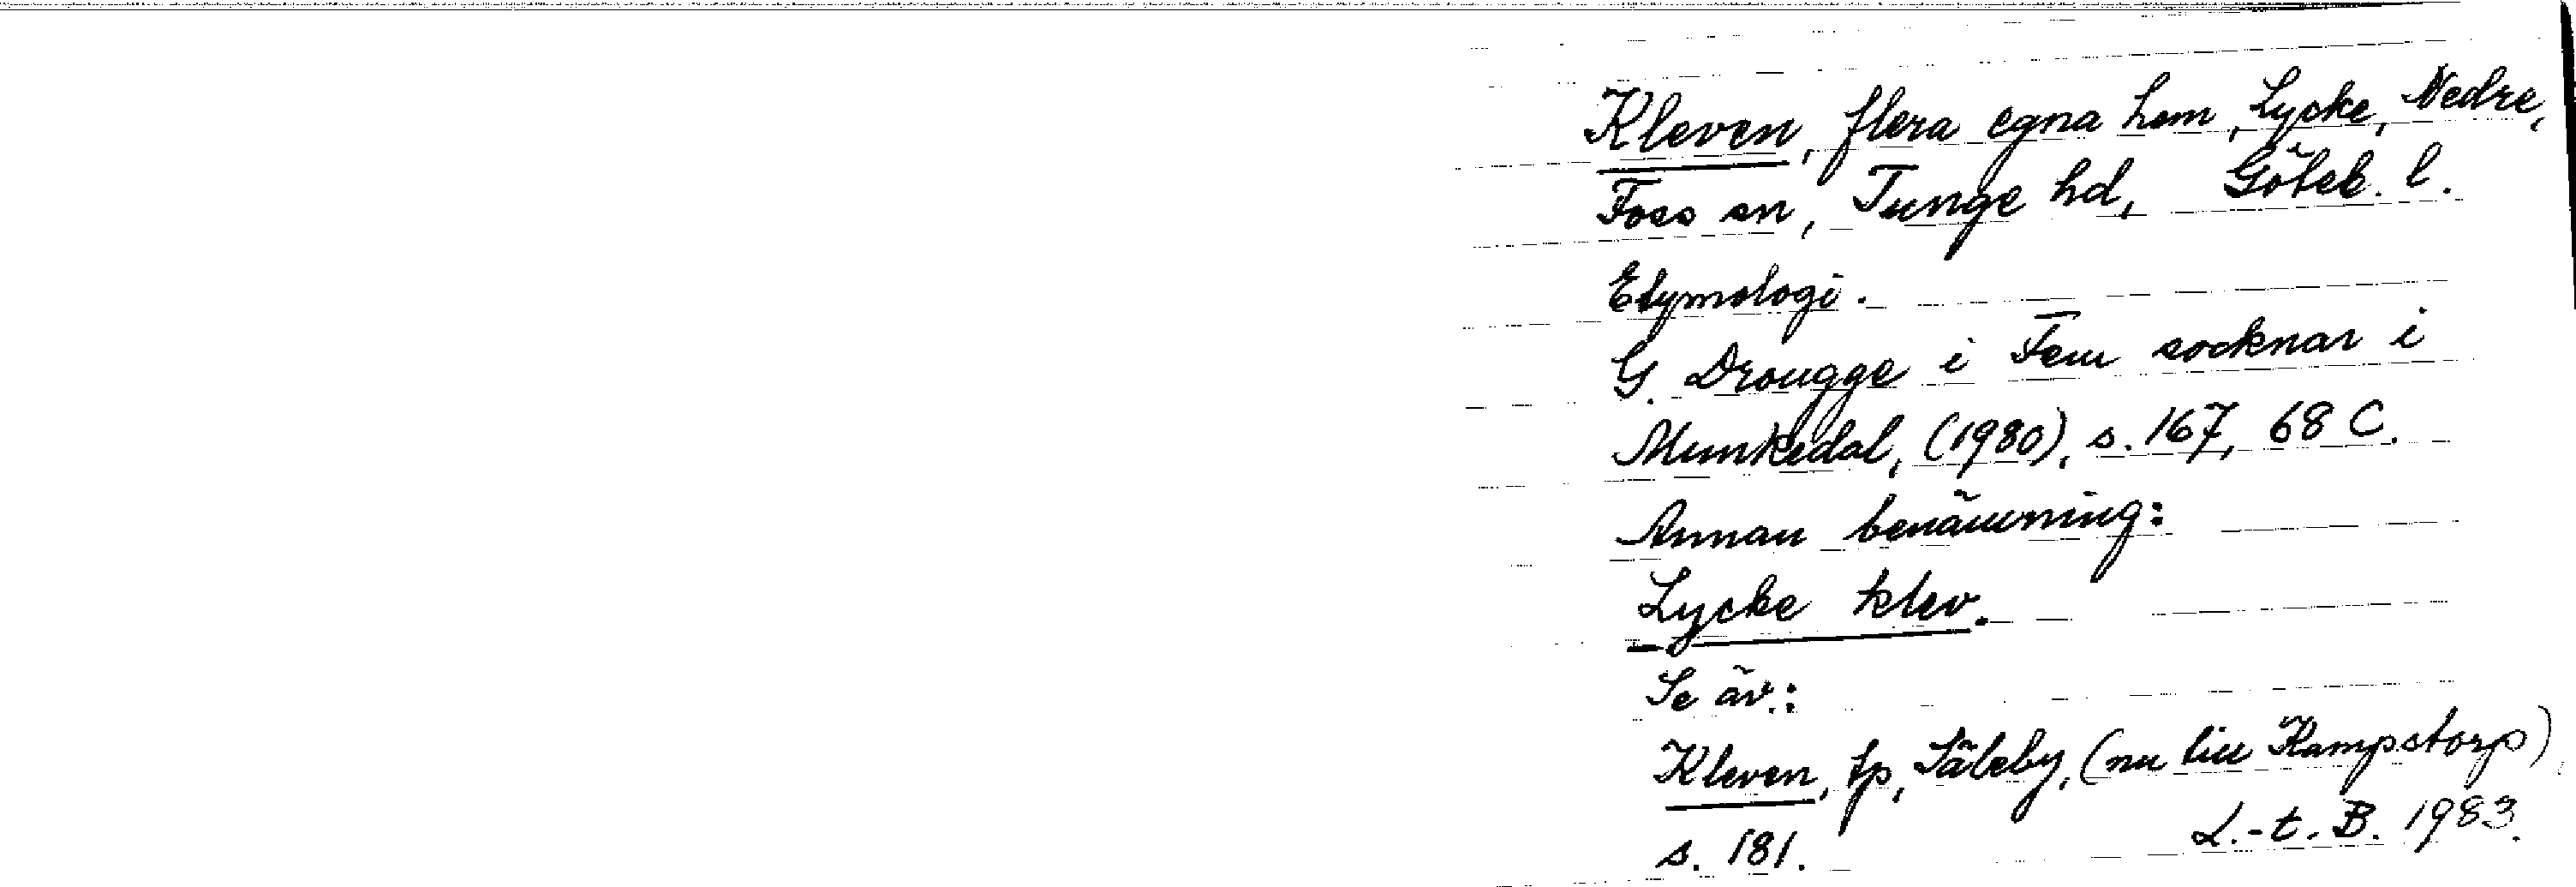 Kleven, flera egna hem, Lycke, Nedre,
Foss sn, Tunge hd, Göteb. l.
Etymologi.
G. Drougge i Fem socknar i
Munkedal, (1980), s. 167, 68 C.
Annan benämning:
Lycke klev.
Se äv.:
Kleven, tp, Säleby, (nu till Kampstorp)
s. 181. L.-t. B. 1983.